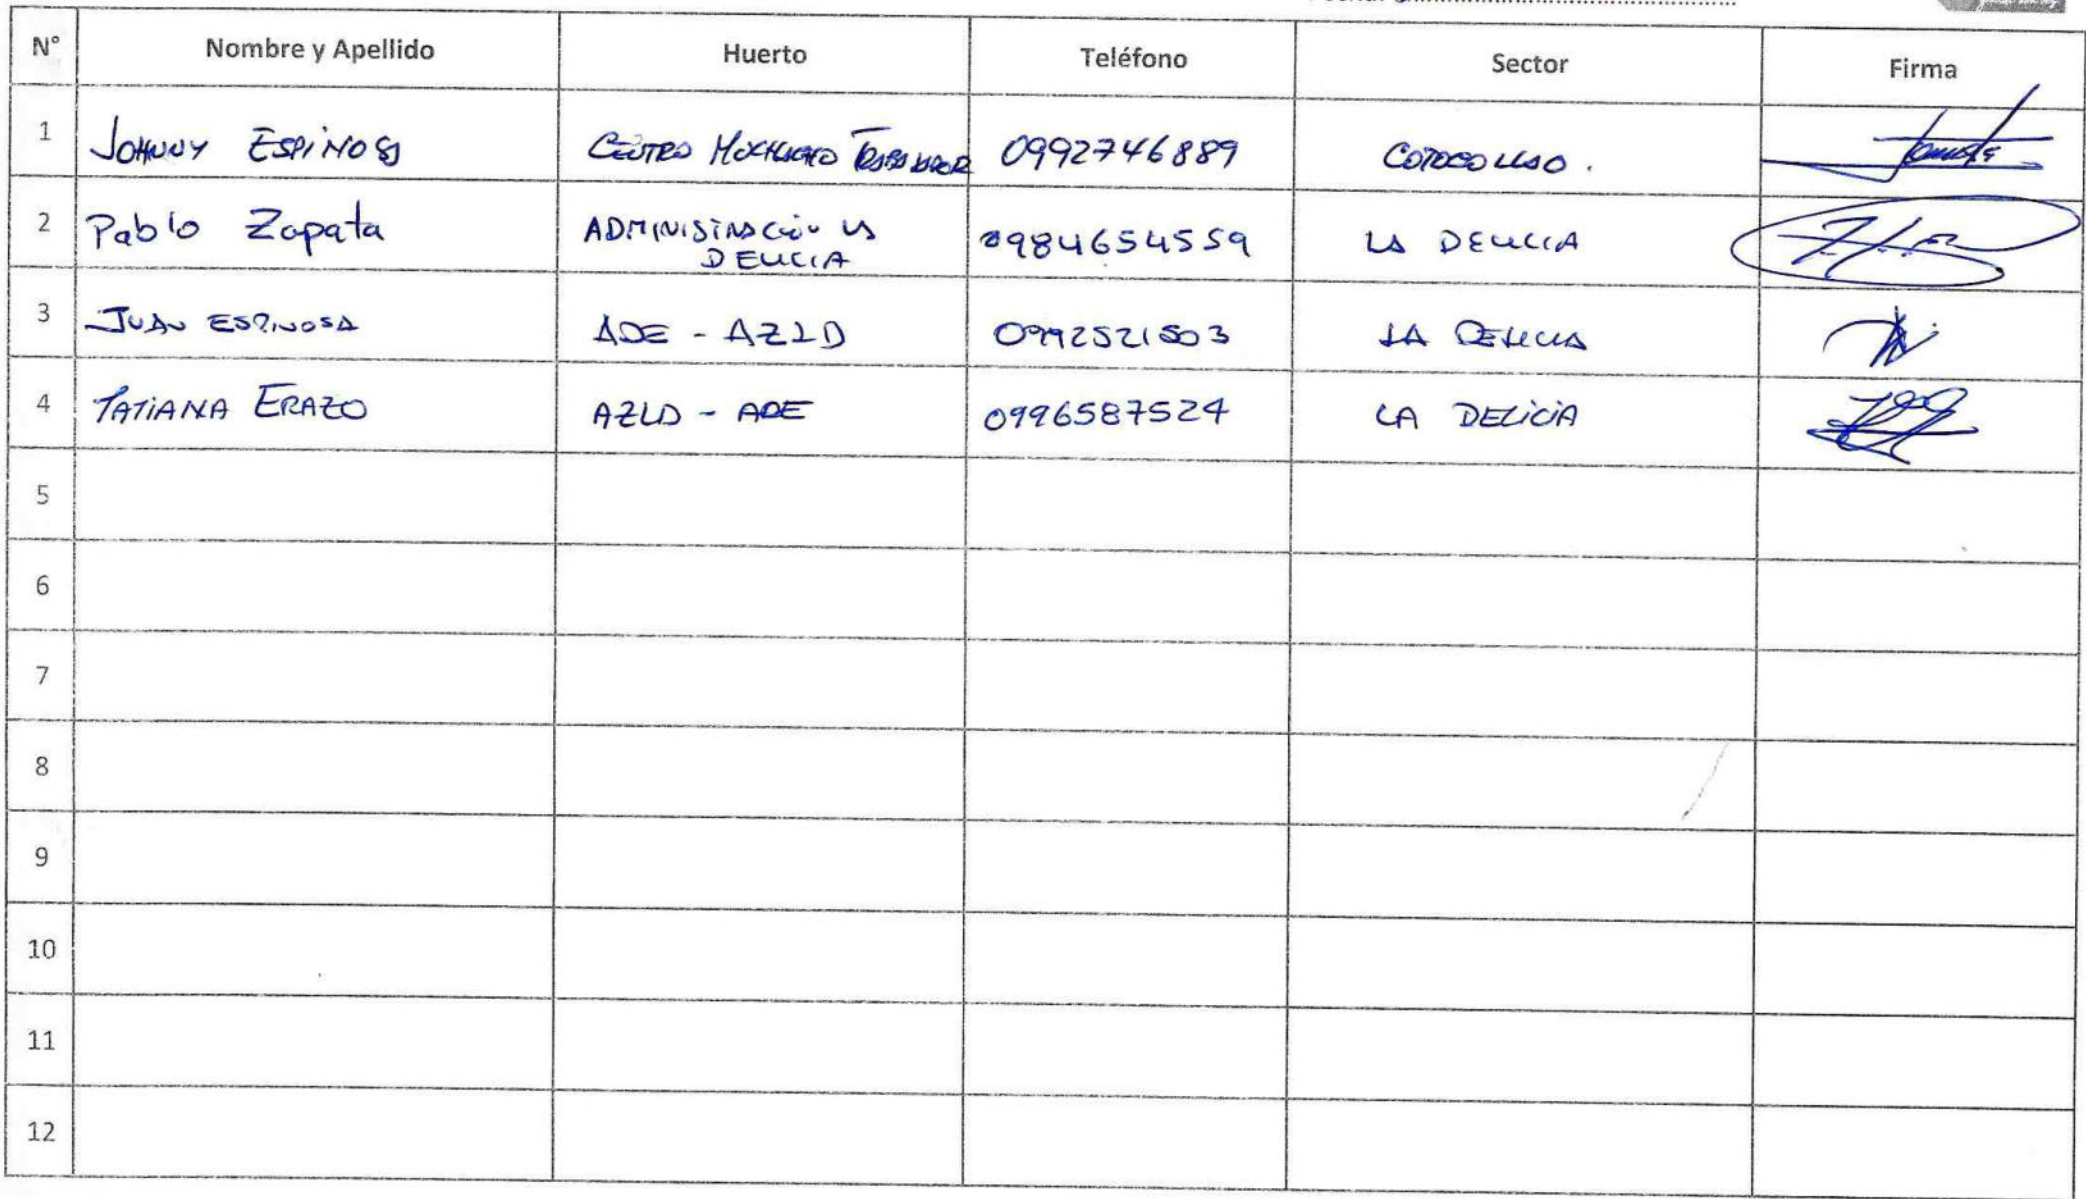 N° Nombre y Apellido Huerto Teléfono Sector Firma
1 JOHNNY ESPINOSA CENTRO 0992746889 COTOCOLLAO.
2 Pablo Zapata ADMINISTRACIÓN LA DELICIA 0984654559 LA DELICIA
3 JUAN ESPINOSA ADE - AZLD LA DELICIA
4 TATIANA ERAZO AZLD - ADE 0996587524 LA DELICIA
5
6
7
8
9
10
11
12